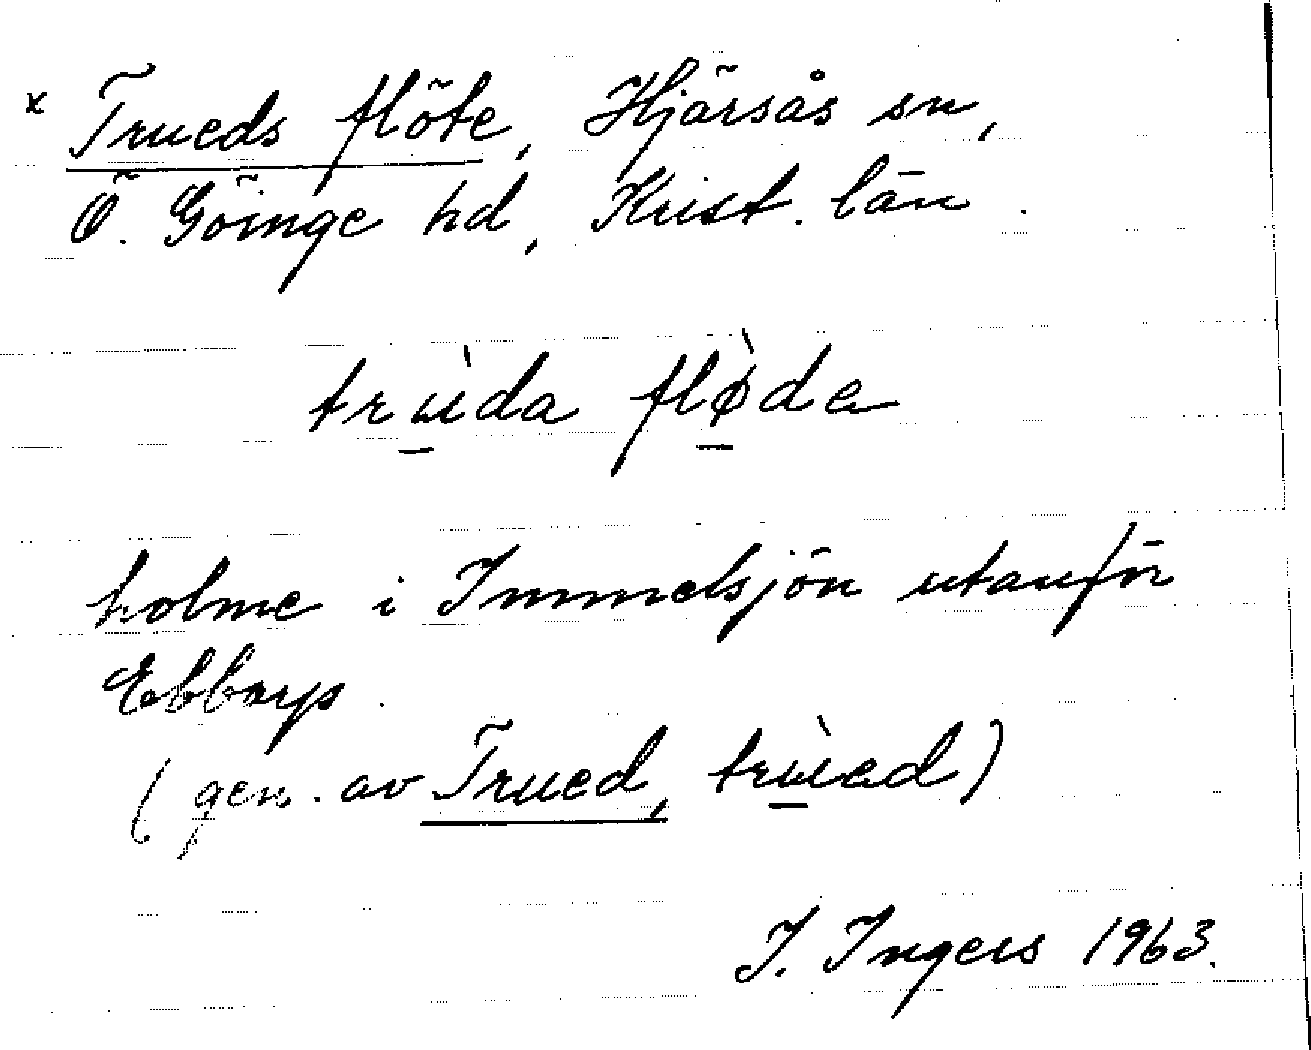 x Trueds flöte, Hjärsås sn,
Ö. Göinge hd, Krist. län.
trùda flø̀de
holme i Immelsjön utanför
Ebbarp.
(gen. av Trued, trùed)
I. Ingers 1963.